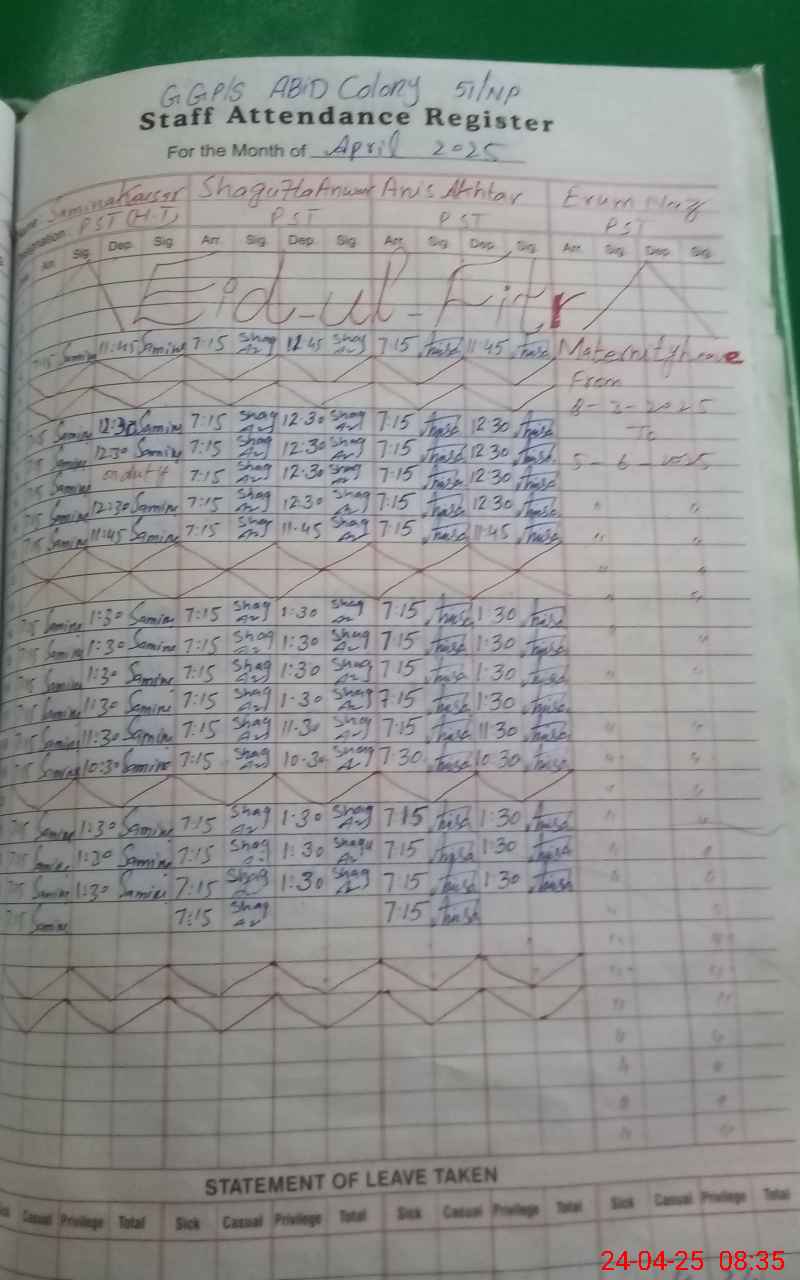 GGP/S ABID Colony 51/NP
Staff Attendance Register
For the Month of April 2025
Samina Kauser Shagufta Anwar Anis Akhtar Erum Naz
PST (H.T) PST PST PST
Arr. Sig. Dep. Sig. Arr. Sig. Dep. Sig. Arr. Sig. Dep. Sig. Arr. Sig. Dep. Sig.
Eid-ul-Fitr
7:15 Samina 11:45 Samina 7:15 Shag 12:45 Shag 7:15 11:45 Maternity leave
From
8-3-2025
7:15 Samina 12:30 Samina 7:15 Shag 12:30 Shag 7:15 12:30 To
7:15 Samina 12:30 Samina 7:15 Shag 12:30 Shag 7:15 12:30 5-6-2025
7:15 Samina on duty 7:15 Shag 12:30 Shag 7:15 12:30
7:15 Samina 12:30 Samina 7:15 Shag 12:30 Shag 7:15 12:30 " "
7:15 Samina 11:45 Samina 7:15 Shag 11:45 Shag 7:15 11:45 " "
" "
" "
7:15 Samina 1:30 Samina 7:15 Shag 1:30 Shag 7:15 1:30 "
7:15 Samina 1:30 Samina 7:15 Shag 1:30 Shag 7:15 1:30 "
7:15 Samina 1:30 Samina 7:15 Shag 1:30 Shag 7:15 1:30 " "
7:15 Samina 1:30 Samina 7:15 Shag 1:30 Shag 7:15 1:30
7:15 Samina 11:30 Samina 7:15 Shag 11:30 Shag 7:15 11:30 " "
7:15 Samina 10:30 Samina 7:15 Shag 10:30 Shag 7:30 10:30 " "
" "
7:15 Samina 1:30 Samina 7:15 Shag 1:30 Shag 7:15 1:30 " "
7:15 Samina 1:30 Samina 7:15 Shag 1:30 Shagu 7:15 1:30 " "
7:15 Samina 1:30 Samina 7:15 Shag 1:30 Shag 7:15 1:30 " "
7:15 Samina 7:15 Shag 7:15 " "
" "
" "
" "
" "
" "
" "
" "
STATEMENT OF LEAVE TAKEN
Sick Casual Privilege Total Sick Casual Privilege Total Sick Casual Privilege Total Sick Casual Privilege Total
24-04-25 08:35